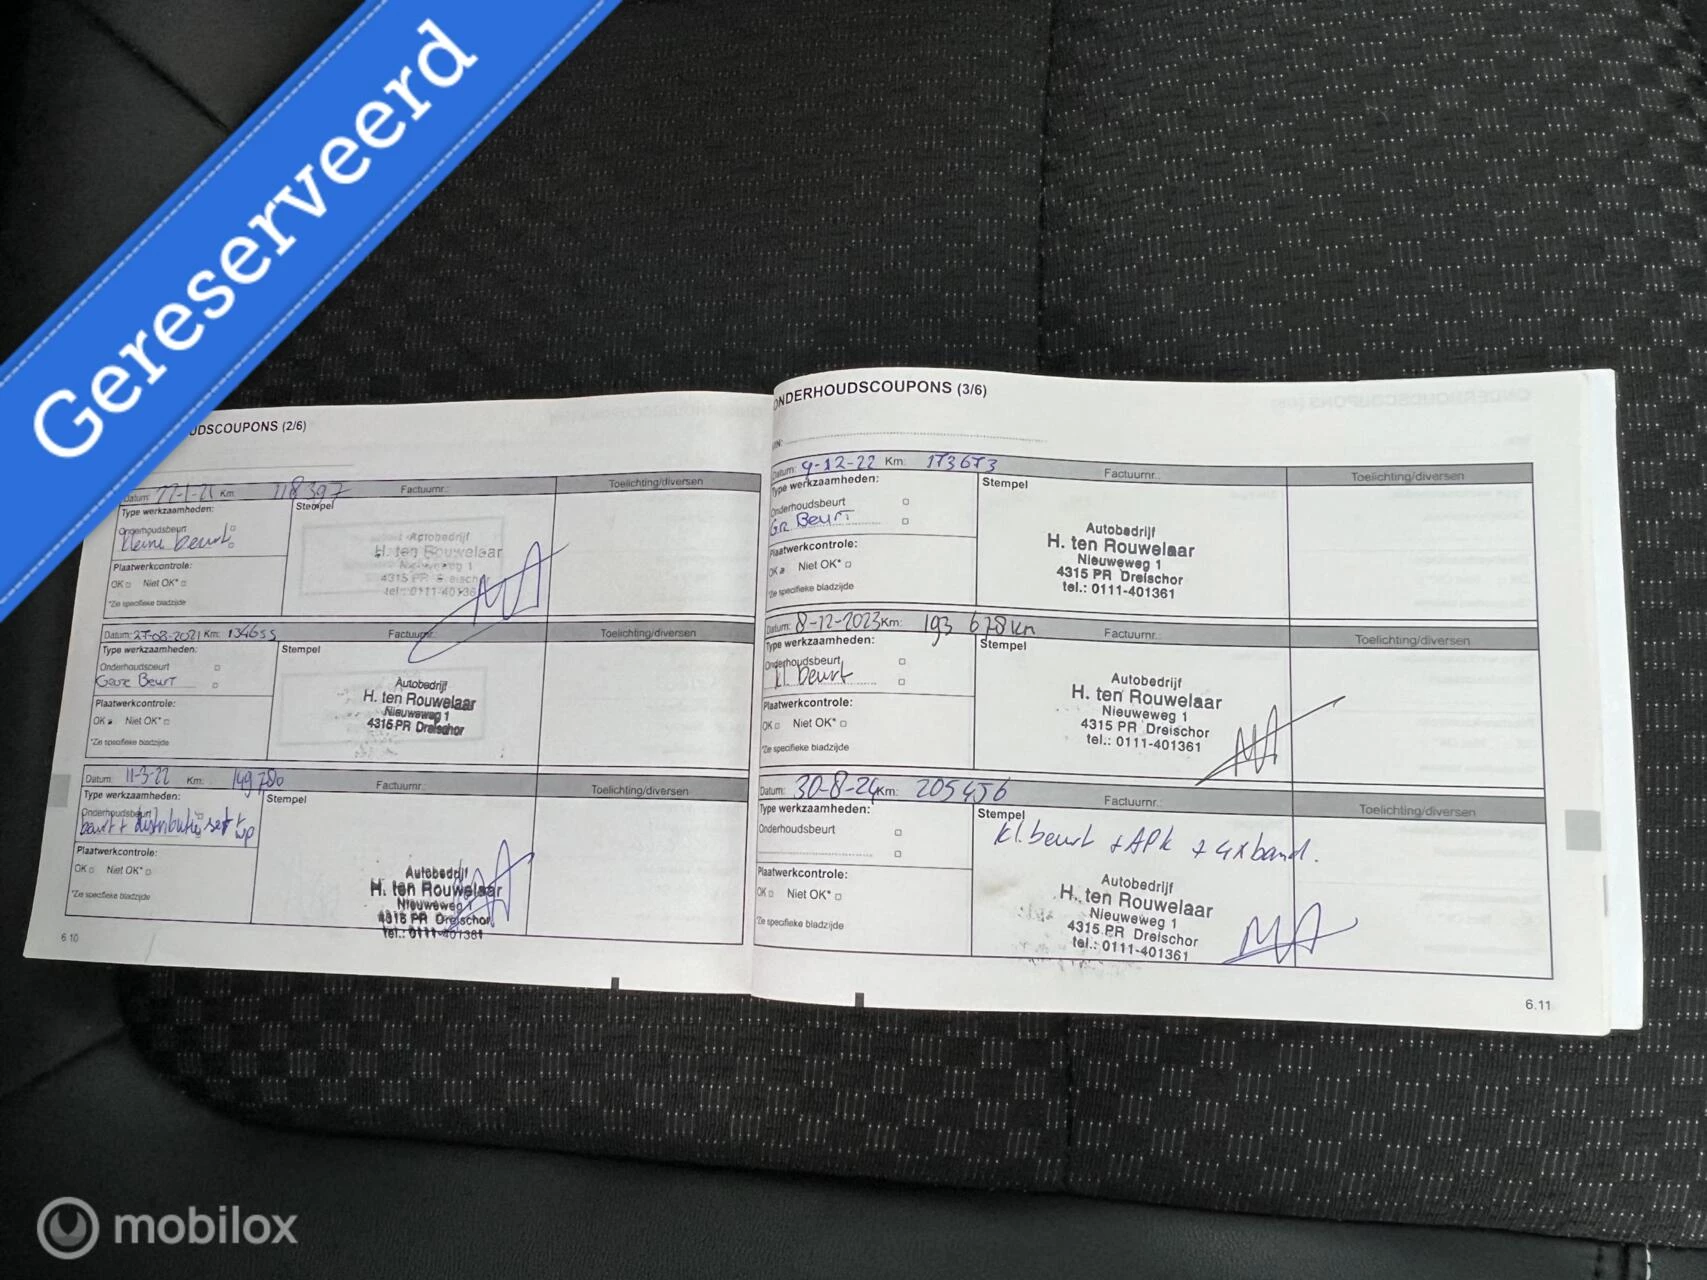 Gereserveerd
UDSCOUPONS (2/6)
Datum: 22-1-21 Km: 118397 Factuurnr.: Toelichting/diversen
Type werkzaamheden: Stempel
Onderhoudsbeurt
kleine beurt
Plaatwerkcontrole:
OK Niet OK*
*Zie specifieke bladzijde
Autobedrijf
H. ten Rouwelaar
Nieuweweg 1
4315 PR Dreischor
tel.: 0111-401361
Datum: 27-08-2021 Km: 134655 Factuurnr.: Toelichting/diversen
Type werkzaamheden: Stempel
Onderhoudsbeurt
Grote Beurt
Plaatwerkcontrole:
OK Niet OK*
*Zie specifieke bladzijde
Autobedrijf
H. ten Rouwelaar
Nieuweweg 1
4315 PR Dreischor
Datum: 11-3-22 Km: 149780 Factuurnr.: Toelichting/diversen
Type werkzaamheden: Stempel
Onderhoudsbeurt
beurt + distributie set + wp
Plaatwerkcontrole:
OK Niet OK*
*Zie specifieke bladzijde
Autobedrijf
H. ten Rouwelaar
Nieuweweg 1
4315 PR Dreischor
tel.: 0111-401361
6.10
ONDERHOUDSCOUPONS (3/6)
VIN:
Datum: 9-12-22 Km: 173673 Factuurnr.: Toelichting/diversen
Type werkzaamheden: Stempel
Onderhoudsbeurt
Gr Beurt
Plaatwerkcontrole:
OK Niet OK*
*Zie specifieke bladzijde
Autobedrijf
H. ten Rouwelaar
Nieuweweg 1
4315 PR Dreischor
tel.: 0111-401361
Datum: 8-12-2023 Km: 193 678 km Factuurnr.: Toelichting/diversen
Type werkzaamheden: Stempel
Onderhoudsbeurt
kl. beurt
Plaatwerkcontrole:
OK Niet OK*
*Zie specifieke bladzijde
Autobedrijf
H. ten Rouwelaar
Nieuweweg 1
4315 PR Dreischor
tel.: 0111-401361
Datum: 30-8-24 Km: 205456 Factuurnr.: Toelichting/diversen
Type werkzaamheden: Stempel
kl. beurt + APK + 4x band.
Onderhoudsbeurt
Plaatwerkcontrole:
OK Niet OK*
*Zie specifieke bladzijde
Autobedrijf
H. ten Rouwelaar
Nieuweweg 1
4315 PR Dreischor
tel.: 0111-401361
6.11
mobilox